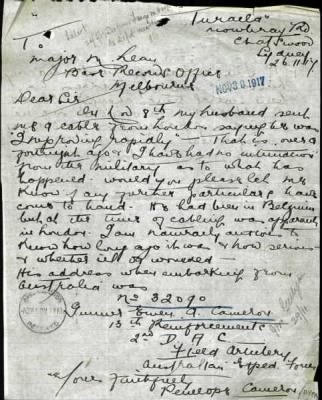 "Turaela"
Nowbray Rd
Chatswood
Sydney
26.11.17
To
Major M Lean
Base Records Office
Melbourne
NOV 29 1917
Dear Sir
On Nov 8th my husband sent
me a cable from London saying he was
"Improving rapidly". That is over a
fortnight ago & I have had no intimation
from the military as to what has
happened. Would you please let me
know if any further particulars have
come to hand. He had been in Belgium
but at the time of cabling was apparently
in London. I am naturally anxious to
know how long ago it was & how serious
& whether ill or wounded—
His address when embarking from
Australia was
No 32090
Gunner Ewen A. Cameron
13th Reinforcements
2nd D A C
Field Artillery
Australian Exped. Force
Yours Faithfully
Penelope Cameron